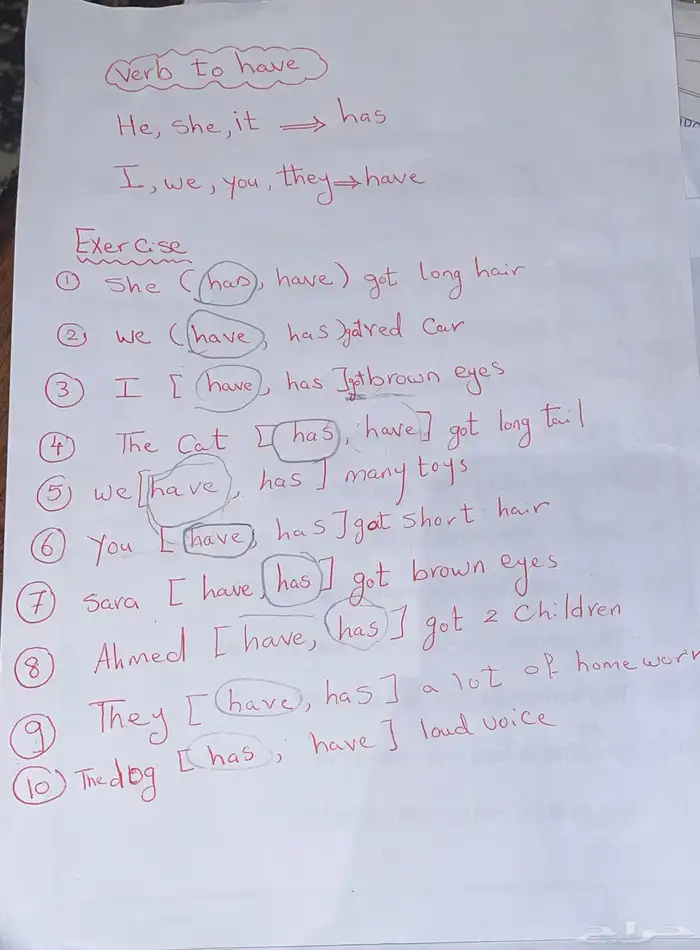 verb to have
He, she, it ⇒ has
I, we, you, they ⇒ have
Exercise
① She (has, have) got long hair
② we (have, has) got red car
③ I [have, has] got brown eyes
④ The Cat [has, have] got long tail
⑤ we [have, has] many toys
⑥ You [have, has] got short hair
⑦ Sara [have, has] got brown eyes
⑧ Ahmed [have, has] got 2 children
⑨ They [have, has] a lot of homework
⑩ The dog [has, have] loud voice
حراج